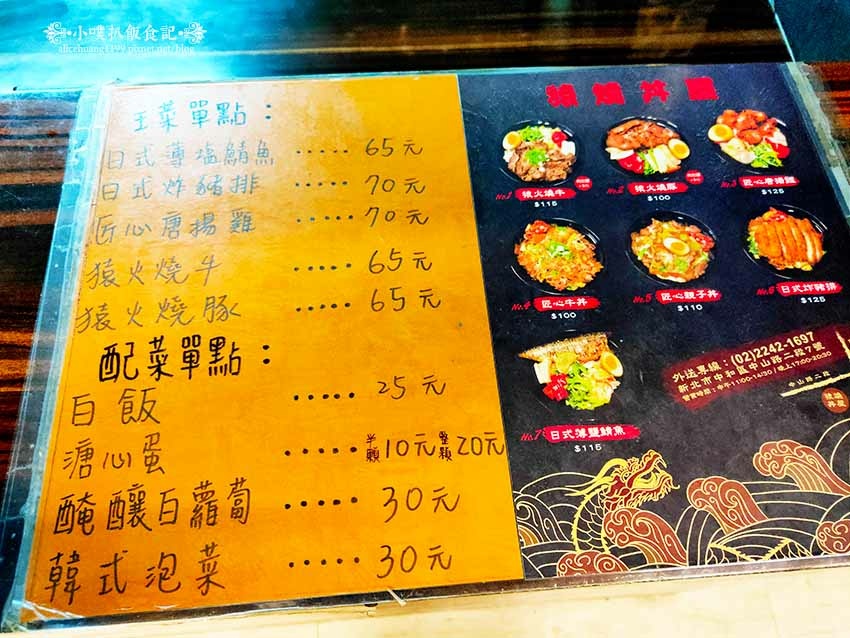 小噗扒飯食記
alicehuang1199.pixnet.net/blog
主菜單點：
日式薄塩鯖魚 ····· 65元
日式炸豬排 ····· 70元
匠心唐揚雞 ····· 70元
猿火燒牛 ····· 65元
猿火燒豚 ····· 65元
配菜單點：
白飯 ····· 25元
溏心蛋 ····· 半顆10元 整顆20元
醃釀白蘿蔔 ····· 30元
韓式泡菜 ····· 30元
猿燒丼屋
No.1 猿火燒牛
$115
No.2 猿火燒豚
$100
No.3 匠心唐揚雞
$125
No.4 匠心牛丼
$100
No.5 匠心親子丼
$110
No.6 日式炸豬排
$125
No.7 日式薄鹽鯖魚
$115
外送專線：(02)2242-1697
新北市中和區中山路二段7號
營業時間：中午11:00-14:30 / 晚上17:00-20:30
中山路二段
猿燒丼屋